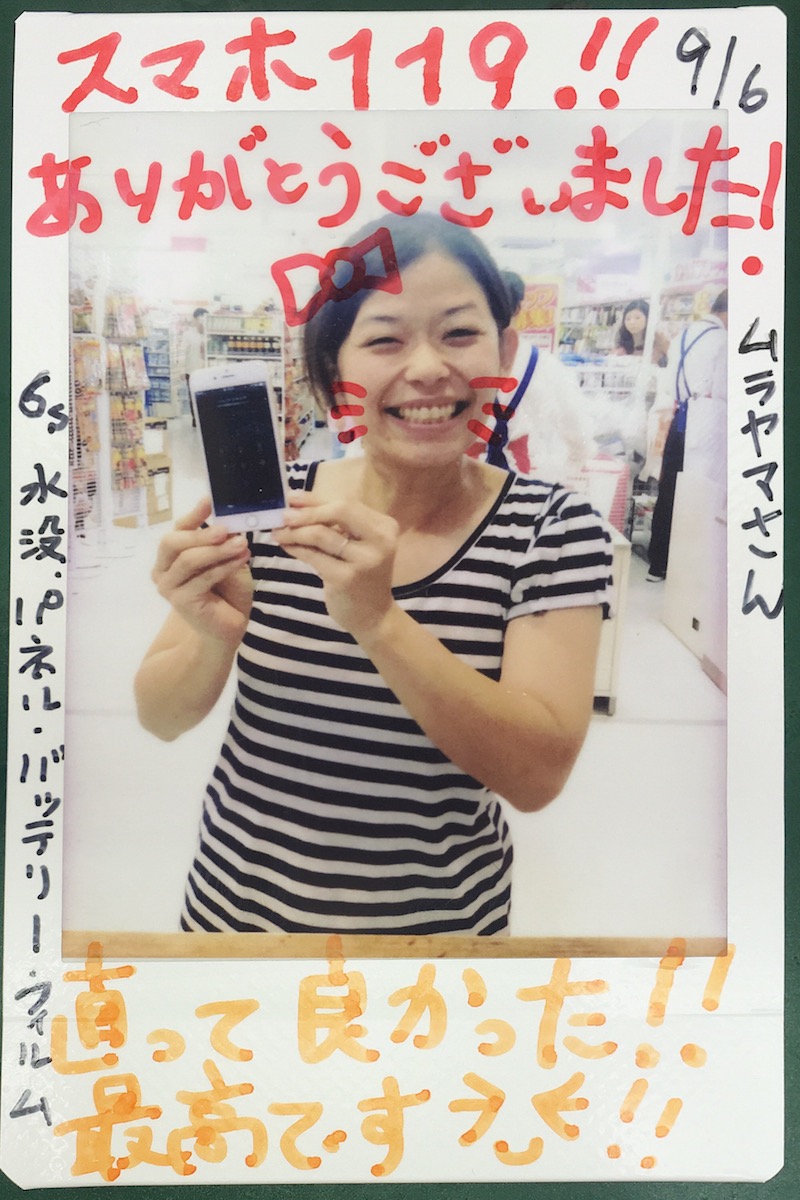 スマホ119!!
9/6
ありがとうございました!
ムラヤマさん
6s 水没・パネル・バッテリー・フィルム
直って良かった!!
最高です!!